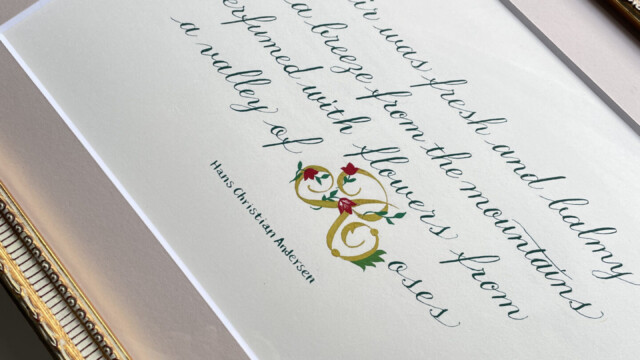 ir was fresh and balmy
a breeze from the mountains
erfumed with flowers from
a valley of Roses
Hans Christian Andersen